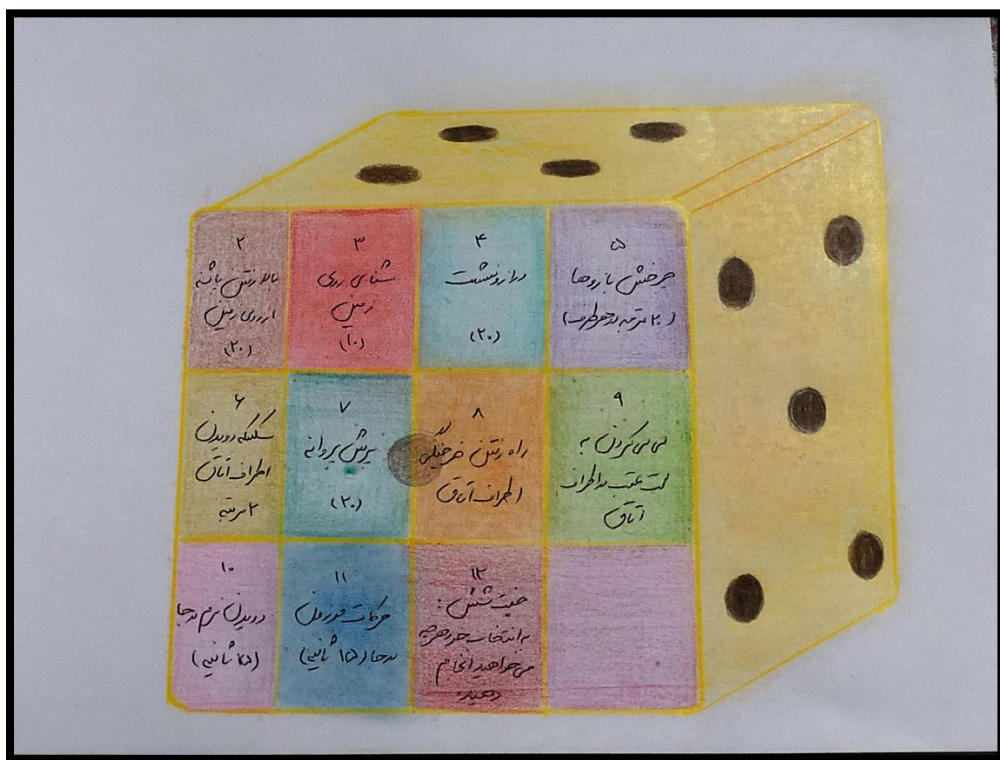 ۲
بالا رفتن پاشنه
از روی زمین
(۲۰)
۳
شنای روی
زمین
(۱۰)
۴
دراز و نشست
(۲۰)
۵
چرخش بازوها
(۲۰ مرتبه به هر طرف)
۶
سکسکه دویدن
اطراف اتاق
۲ مرتبه
۷
پرش پروانه
(۲۰)
۸
راه رفتن خرچنگی
اطراف اتاق
۹
لی لی کردن به
سمت عقب به اطراف
اتاق
۱۰
دویدن نرم درجا
(۲۵ ثانیه)
۱۱
حرکات موزون
درجا (۱۵ ثانیه)
۱۲
جفت شش :
به انتخاب خود هر چه
می خواهید انجام
دهید.